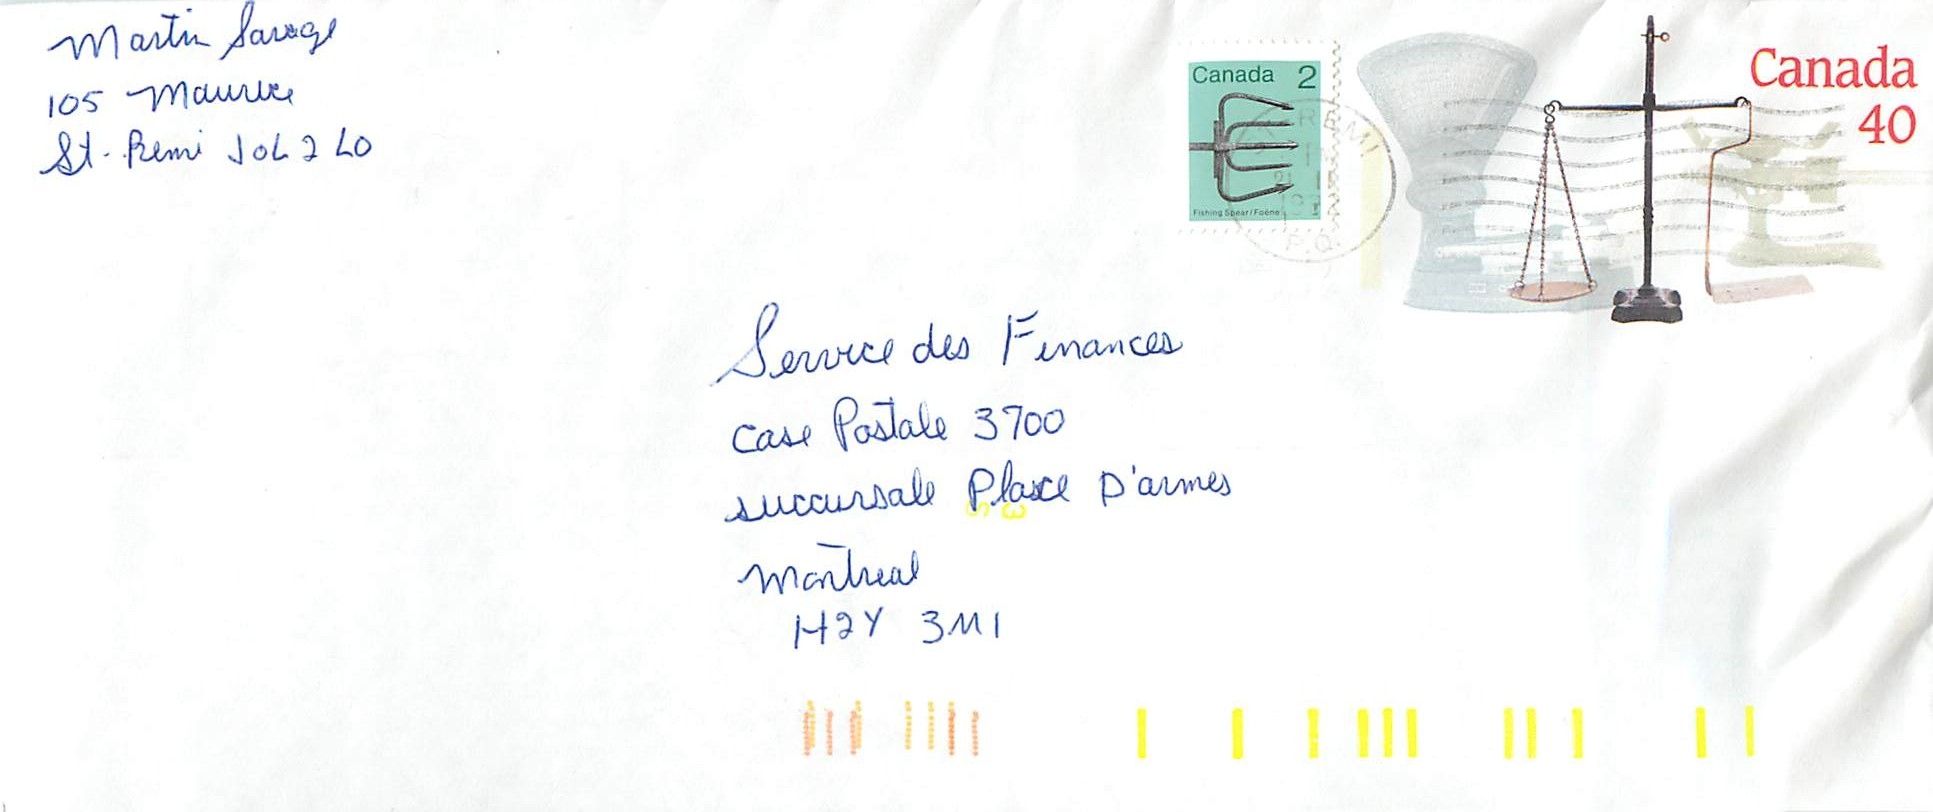 Martin Savage
105 Maurice
St-Remi J0L 2L0
Canada 2
Fishing Spear/Foëne
Canada
40
REMI
P.Q.
Service des Finances
Case Postale 3700
succursale Place D'armes
Montreal
H2Y 3M1